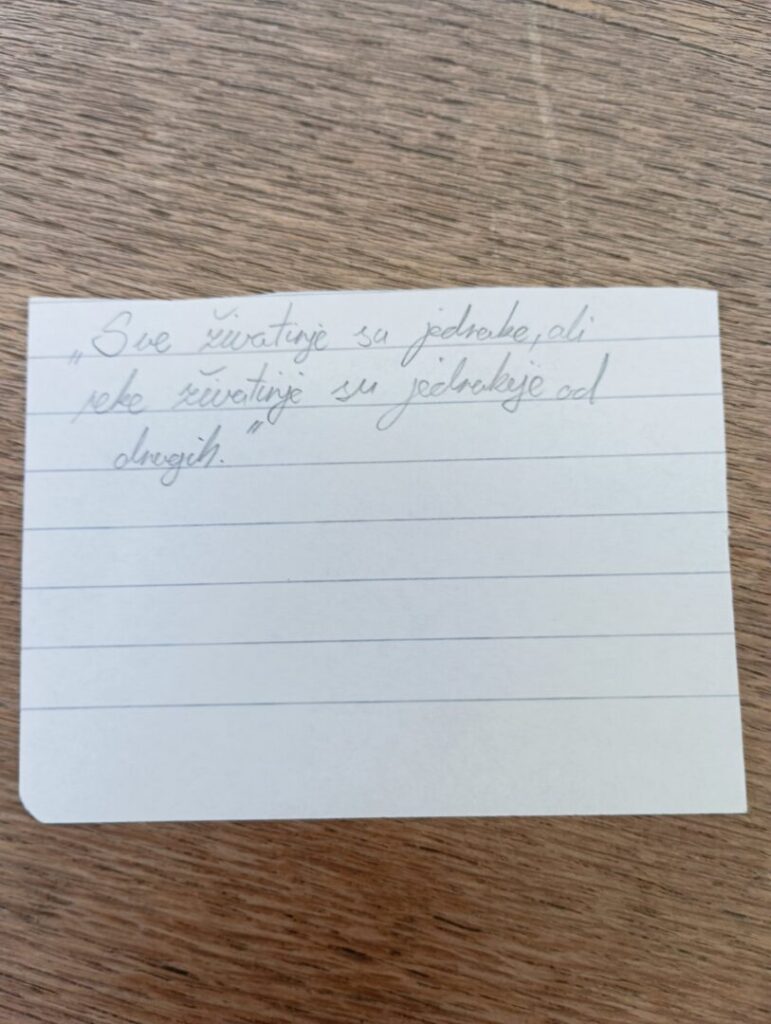 „Sve životinje su jednake, ali
neke životinje su jednakije od
drugih."